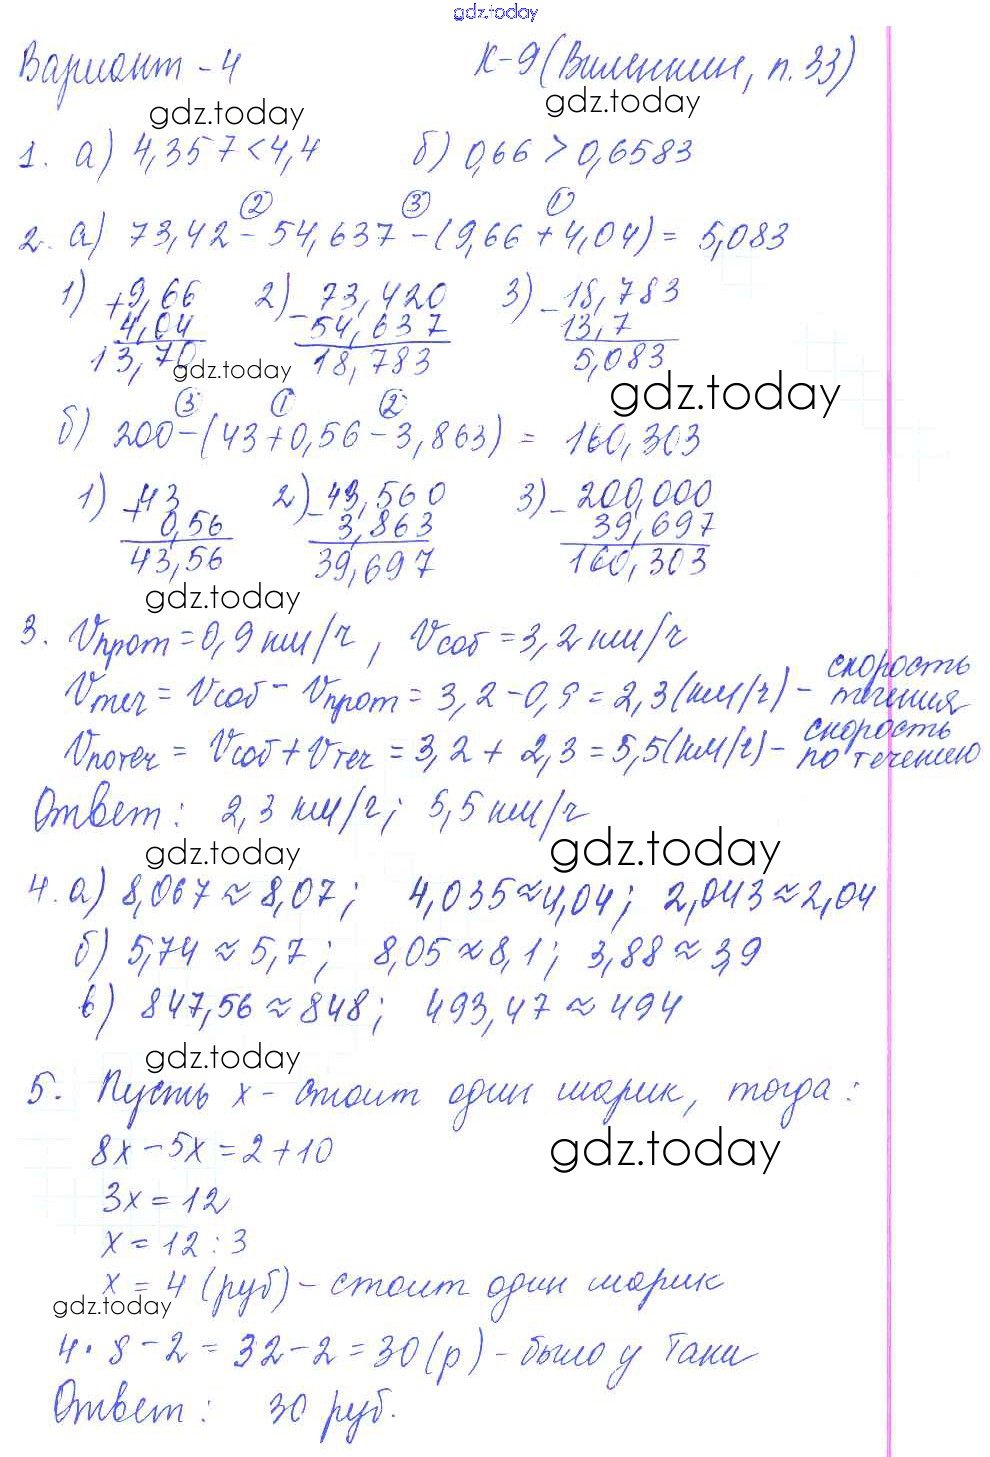 gdz.today
Вариант - 4 К-9 (Виленкин, п.33)
gdz.today gdz.today
1. а) 4,357 < 4,4 б) 0,66 > 0,6583
② ③ ①
2. а) 73,42 - 54,637 - (9,66 + 4,04) = 5,083
1) + 9,66 2) - 73,420 3) - 18,783
4,04 54,637 13,7
13,70 18,783 5,083
gdz.today gdz.today
③ ① ②
б) 200 - (43 + 0,56 - 3,863) = 160,303
1) + 43 2) - 43,560 3) - 200,000
0,56 3,863 39,697
43,56 39,697 160,303
gdz.today
3. Vпрот = 0,9 км/ч, Vсоб = 3,2 км/ч
Vтеч = Vсоб - Vпрот = 3,2 - 0,9 = 2,3 (км/ч) - скорость течения
Vпотеч = Vсоб + Vтеч = 3,2 + 2,3 = 5,5 (км/ч) - скорость по течению
Ответ: 2,3 км/ч; 5,5 км/ч
gdz.today gdz.today
4. а) 8,067 ≈ 8,07; 4,035 ≈ 4,04; 2,043 ≈ 2,04
б) 5,74 ≈ 5,7; 8,05 ≈ 8,1; 3,88 ≈ 3,9
в) 847,56 ≈ 848; 493,47 ≈ 494
gdz.today
5. Пусть х - стоит один шарик, тогда:
8х - 5х = 2 + 10
gdz.today
3х = 12
х = 12 : 3
х = 4 (руб) - стоит один шарик
gdz.today
4 · 8 - 2 = 32 - 2 = 30 (р) - было у Тани
Ответ: 30 руб.